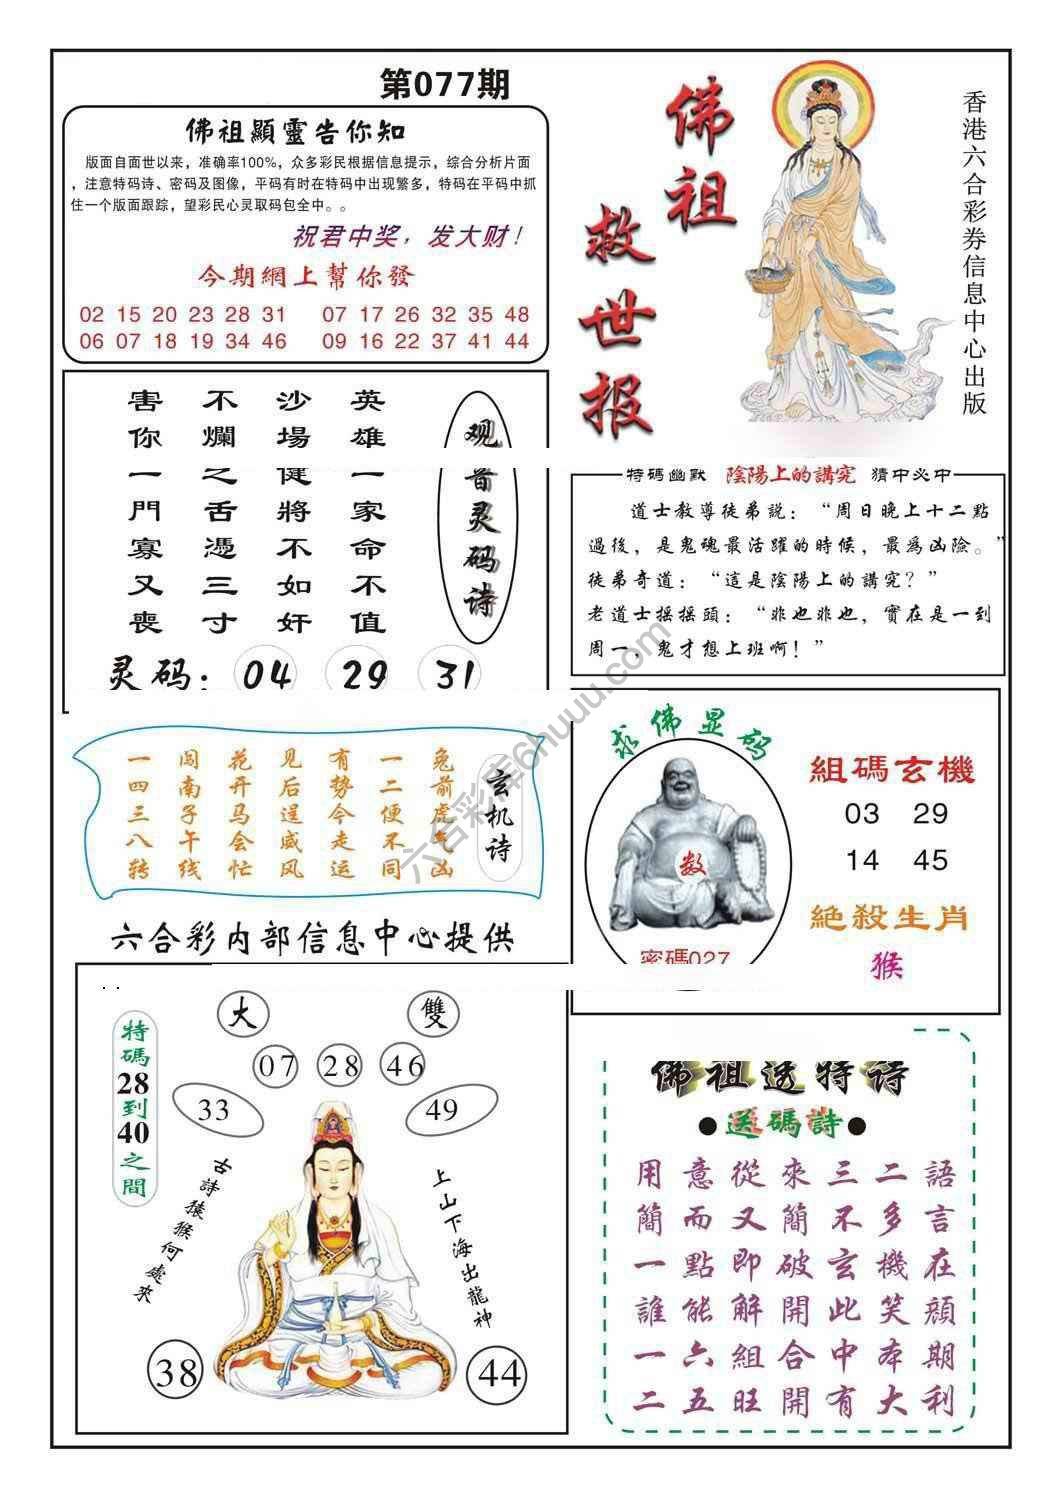 第077期
佛祖顯靈告你知
版面自面世以来，准确率100%，众多彩民根据信息提示，综合分析片面
，注意特码诗、密码及图像，平码有时在特码中出现繁多，特码在平码中抓
住一个版面跟踪，望彩民心灵取码包全中。。
祝君中奖，发大财！
今期網上幫你發
02 15 20 23 28 31 07 17 26 32 35 48
06 07 18 19 34 46 09 16 22 37 41 44
佛祖
救世报
香港六合彩券信息中心出版
观音灵码诗
英雄一家命不值
沙場健將不如奸
不爛之舌憑三寸
害你一門寡又喪
灵码：04 29 31
特碼幽默 陰陽上的講究 猜中必中
道士教導徒弟説：“周日晚上十二點
過後，是鬼魂最活躍的時候，最爲凶險。”
徒弟奇道：“這是陰陽上的講究？”
老道士摇摇頭：“非也非也，實在是一到
周一，鬼才想上班啊！”
玄机诗
兔前虎气凶
一二便不同
有势今走运
见后逞威风
花开马会忙
闯南子午线
一四三八转
求佛显码
数
密碼027
組碼玄機
03 29
14 45
絶殺生肖
猴
六合彩内部信息中心提供
大 雙
07 28 46
33 49
特碼28到40之間
古詩猿猴何處來
上山下海出龍神
38 44
佛祖透特诗
●送碼詩●
用意從來三二語
簡而又簡不多言
一點即破玄機在
誰能解開此笑顔
一六組合中本期
二五旺開有大利
六合彩库6huuu.com